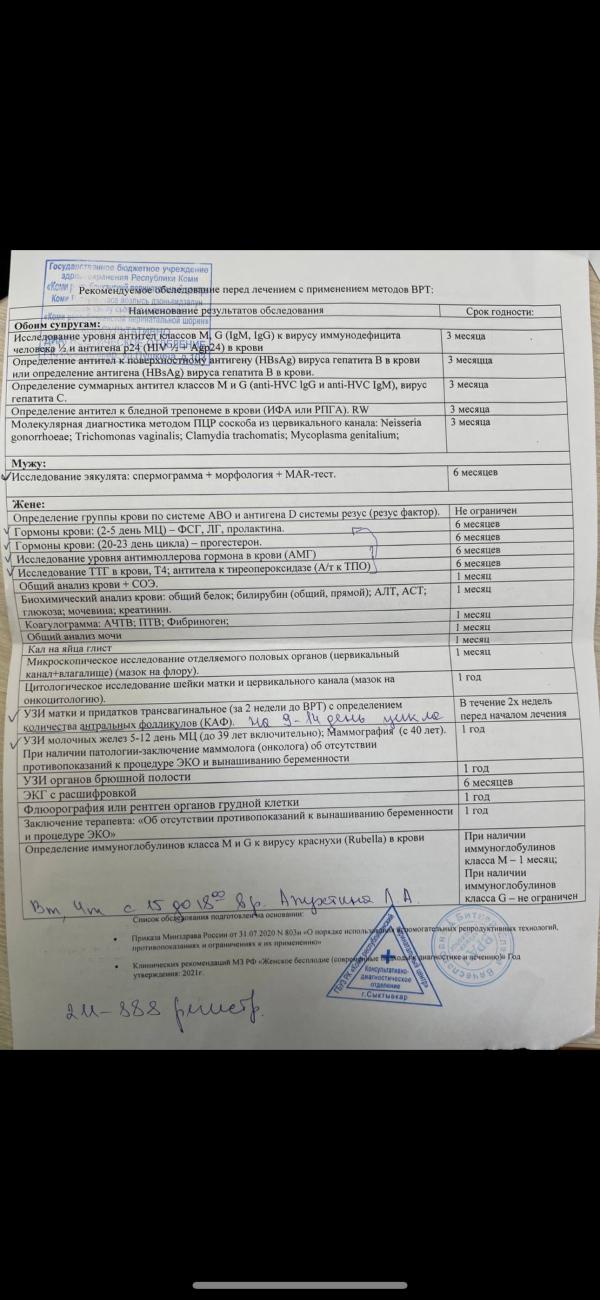 Государственное бюджетное учреждение
здравоохранения Республики Коми
Рекомендуемое обследование перед лечением с применением методов ВРТ:
Наименование результатов обследования
Срок годности:
Обоим супругам:
Исследование уровня антител классов M, G (IgM, IgG) к вирусу иммунодефицита
человека ½ и антигена p24 (HIV ½ + Agp24) в крови
3 месяца
Определение антител к поверхностному антигену (HBsAg) вируса гепатита В в крови
или определение антигена (HBsAg) вируса гепатита В в крови.
3 месяцца
Определение суммарных антител классов М и G (anti-HVC lgG и anti-HVC IgM), вирус
гепатита С.
3 месяца
Определение антител к бледной трепонеме в крови (ИФА или РПГА). RW
3 месяца
Молекулярная диагностика методом ПЦР соскоба из цервикального канала: Neisseria
gonorrhoeae; Trichomonas vaginalis; Clamydia trachomatis; Mycoplasma genitalium;
3 месяца
Мужу:
Исследование эякулята: спермограмма + морфология + MAR-тест.
6 месяцев
Жене:
Определение группы крови по системе АВО и антигена D системы резус (резус фактор).
Не ограничен
Гормоны крови: (2-5 день МЦ) – ФСГ, ЛГ, пролактина.
6 месяцев
Гормоны крови: (20-23 день цикла) – прогестерон.
6 месяцев
Исследование уровня антимюллерова гормона в крови (АМГ)
6 месяцев
Исследование ТТГ в крови, Т4; антитела к тиреопероксидазе (А/т к ТПО)
6 месяцев
Общий анализ крови + СОЭ.
1 месяц
Биохимический анализ крови: общий белок; билирубин (общий, прямой); АЛТ, АСТ;
глюкоза; мочевина; креатинин.
1 месяц
Коагулограмма: АЧТВ; ПТВ; Фибриноген;
1 месяц
Общий анализ мочи
1 месяц
Кал на яйца глист
1 месяц
Микроскопическое исследование отделяемого половых органов (цервикальный
канал+влагалище) (мазок на флору).
1 месяц
Цитологическое исследование шейки матки и цервикального канала (мазок на
онкоцитологию).
1 год
УЗИ матки и придатков трансвагинальное (за 2 недели до ВРТ) с определением
количества антральных фолликулов (КАФ). на 9-14 день цикла
В течение 2х недель
перед началом лечения
УЗИ молочных желез 5-12 день МЦ (до 39 лет включительно); Маммография (с 40 лет).
При наличии патологии-заключение маммолога (онколога) об отсутствии
противопоказаний к процедуре ЭКО и вынашиванию беременности
1 год
УЗИ органов брюшной полости
1 год
ЭКГ с расшифровкой
6 месяцев
Флюорография или рентген органов грудной клетки
1 год
Заключение терапевта: «Об отсутствии противопоказаний к вынашиванию беременности
и процедуре ЭКО»
1 год
Определение иммуноглобулинов класса М и G к вирусу краснухи (Rubella) в крови
При наличии
иммуноглобулинов
класса М – 1 месяц;
При наличии
иммуноглобулинов
класса G – не ограничен
Вт, Чт с 15 до 18⁰⁰ вр. Л.А.
Список обследования подготовлен на основании:
Приказа Минздрава России от 31.07.2020 N 803н «О порядке использования вспомогательных репродуктивных технологий,
противопоказаниях и ограничениях к их применению»
Клинических рекомендаций МЗ РФ «Женское бесплодие (современные подходы к диагностике и лечению)» Год
утверждения: 2021г.
Консультативно-
диагностическое
отделение
г.Сыктывкар
211-888 регистр.